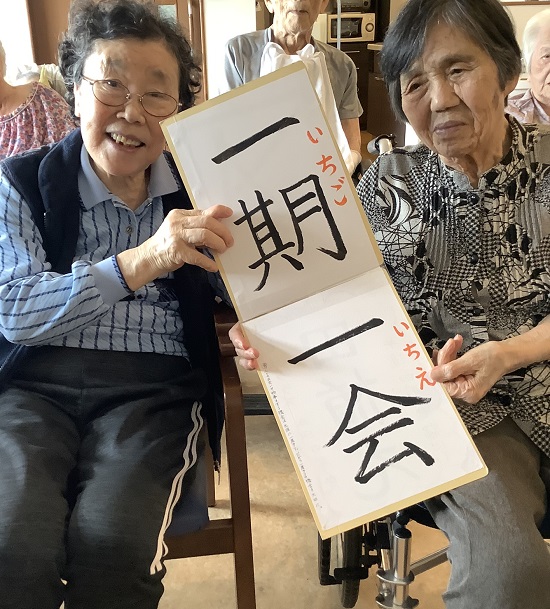 一期
いちご
一会
いちえ